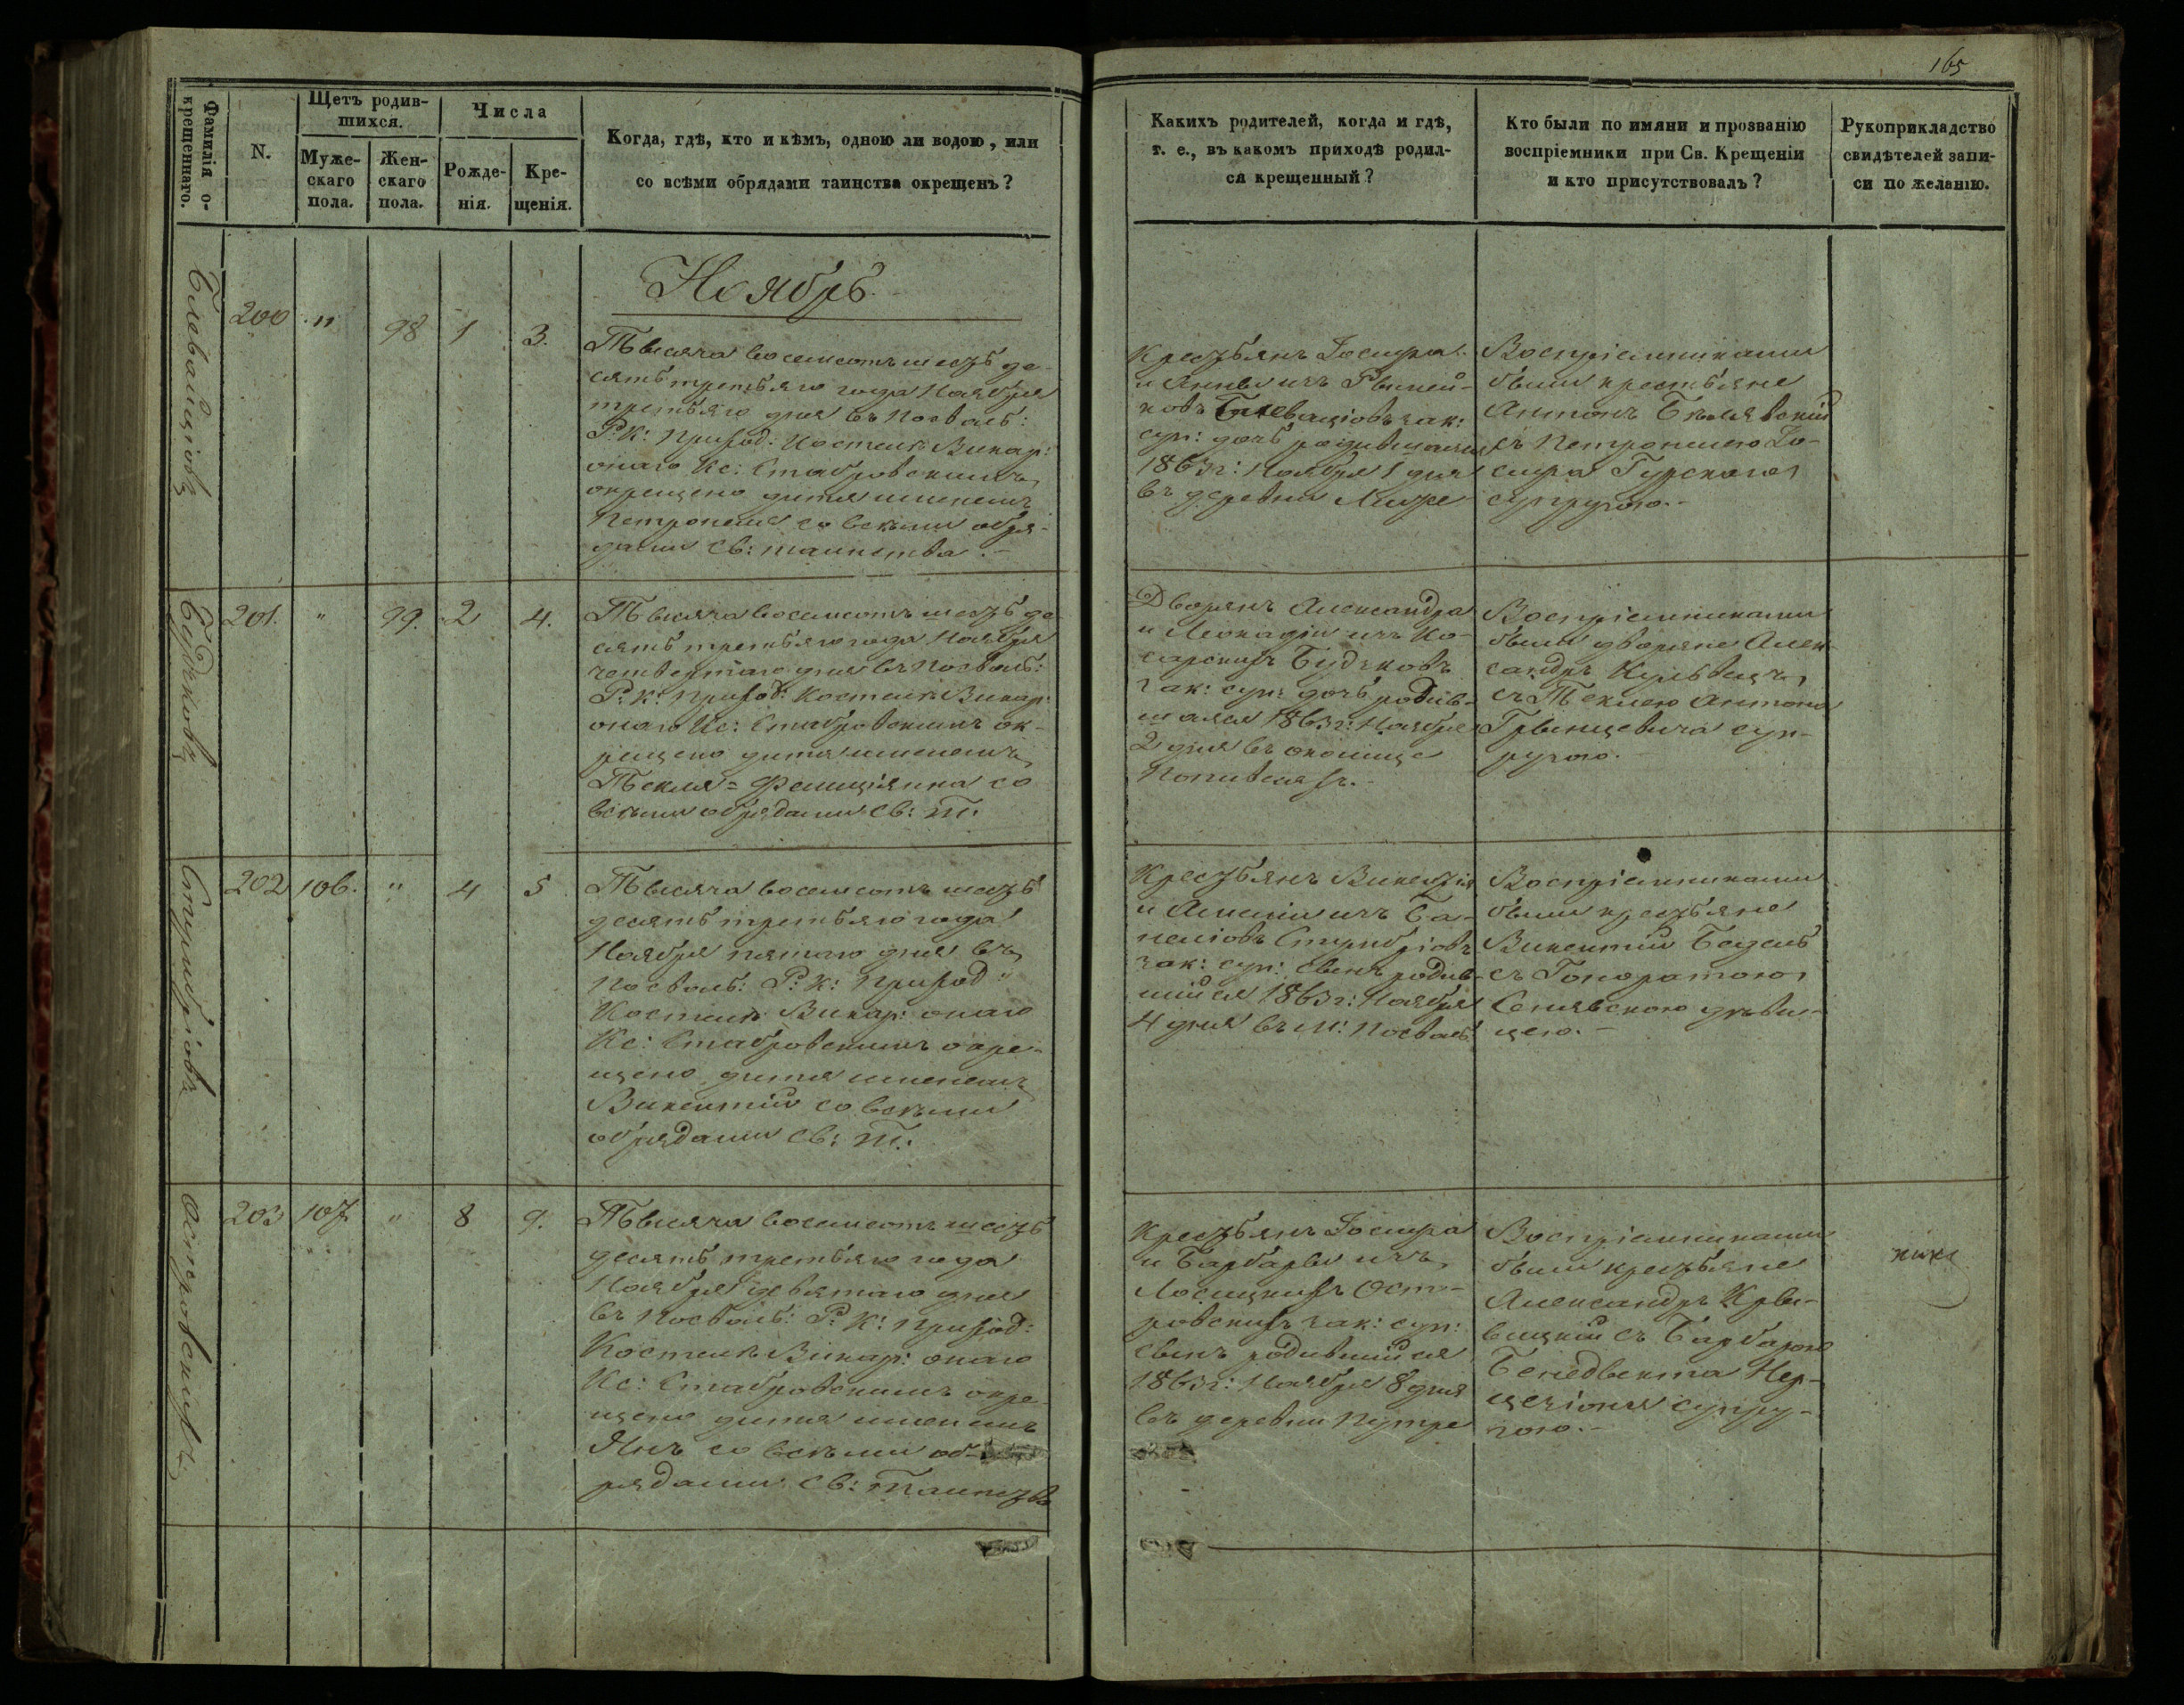 165
Фамилія о-
крещеннаго.
N.
Щетъ родив-
шихся.
Муже-
скаго
пола.
Жен-
скаго
пола.
Числа
Рожде-
нія.
Кре-
щенія.
Когда, гдѣ, кто и кѣмъ, одною ли водою, или
со всѣми обрядами таинства окрещенъ?
Каких родителей, когда и гдѣ,
т. е., въ какомъ приходѣ родил-
ся крещенный?
Кто были по имяни и прозванію
воспріемники при Св. Крещеніи
и кто присутствовалъ?
Рукоприкладство
свидѣтелей запи-
си по желанію.
Ноябрь.
200 " 98 1 3.
Тысяча восемсотъ шесть де-
сять третьяго года Ноября
третьяго дня въ
Р: К: Приход: Костелѣ Викар:
онаго Кс: Стабровскимъ
окрещено дитя именемъ
Петронеля со всѣми обря-
дами Св: таинства.-
Крестьянъ Іосифа
и Анны изъ
зак:
суп: дочь родившаяся
1863 г: Ноября 1 дня
въ деревни
Воспріемниками
были крестьяне
Антонъ
съ Петронелею Іо-
сифа Гурскаго
супругою.-
Будзковъ
201. " 99. 2 4.
Тысяча восемсотъ шесть де-
сять третьяго года Ноября
четвертаго дня въ
Р: К: Приход: Костелѣ Викар:
онаго Кс: Стабровскимъ ок-
рещено дитя именемъ
Текля=Фелиціянна со
всѣми обрядами Св: Т.
Дворянъ Александра
и Леокадіи изъ Ко-
сарскихъ Будзковъ
зак: суп: дочь родив-
шаяся 1863 г: Ноября
2 дня въ околице
Воспріемниками
были дворяне Алек-
сандръ
съ Теклею Антона
Грынцевича суп-
ругою.-
202 106. " 4 5
Тысяча восемсотъ шесть
десять третьяго года
Ноября пятаго дня въ
Р: К: Приход:
Костелѣ Викар: онаго
Кс: Стабровскимъ окре-
щено дитя именемъ
Викентій со всѣми
обрядами Св: Т.
Крестьянъ Викентія
и изъ Ба-
зак: суп: сынъ родив-
шійся 1863 г: Ноября
4 дня въ м:
Воспріемниками
были крестьяне
Викентій
съ Гоноратою
дѣви-
цею.-
Островскихъ.
203 107 " 8 9.
Тысяча восемсотъ шесть
десять третьяго года
Ноября девятаго дня
въ Р: К: Приход:
Костелѣ Викар: онаго
Кс: Стабровскимъ окре-
щено дитя именемъ
Янъ со всѣми об-
рядами Св: Таинства
Крестьянъ Іосифа
и Барбары изъ
Лосицкихъ Ост-
ровскихъ зак: суп:
сынъ родившійся
1863 г: Ноября 8 дня
въ деревни
Воспріемниками
были крестьяне
Александръ Кры-
вицкій съ Барбарою
Бенедыкта
супру-
гою.-